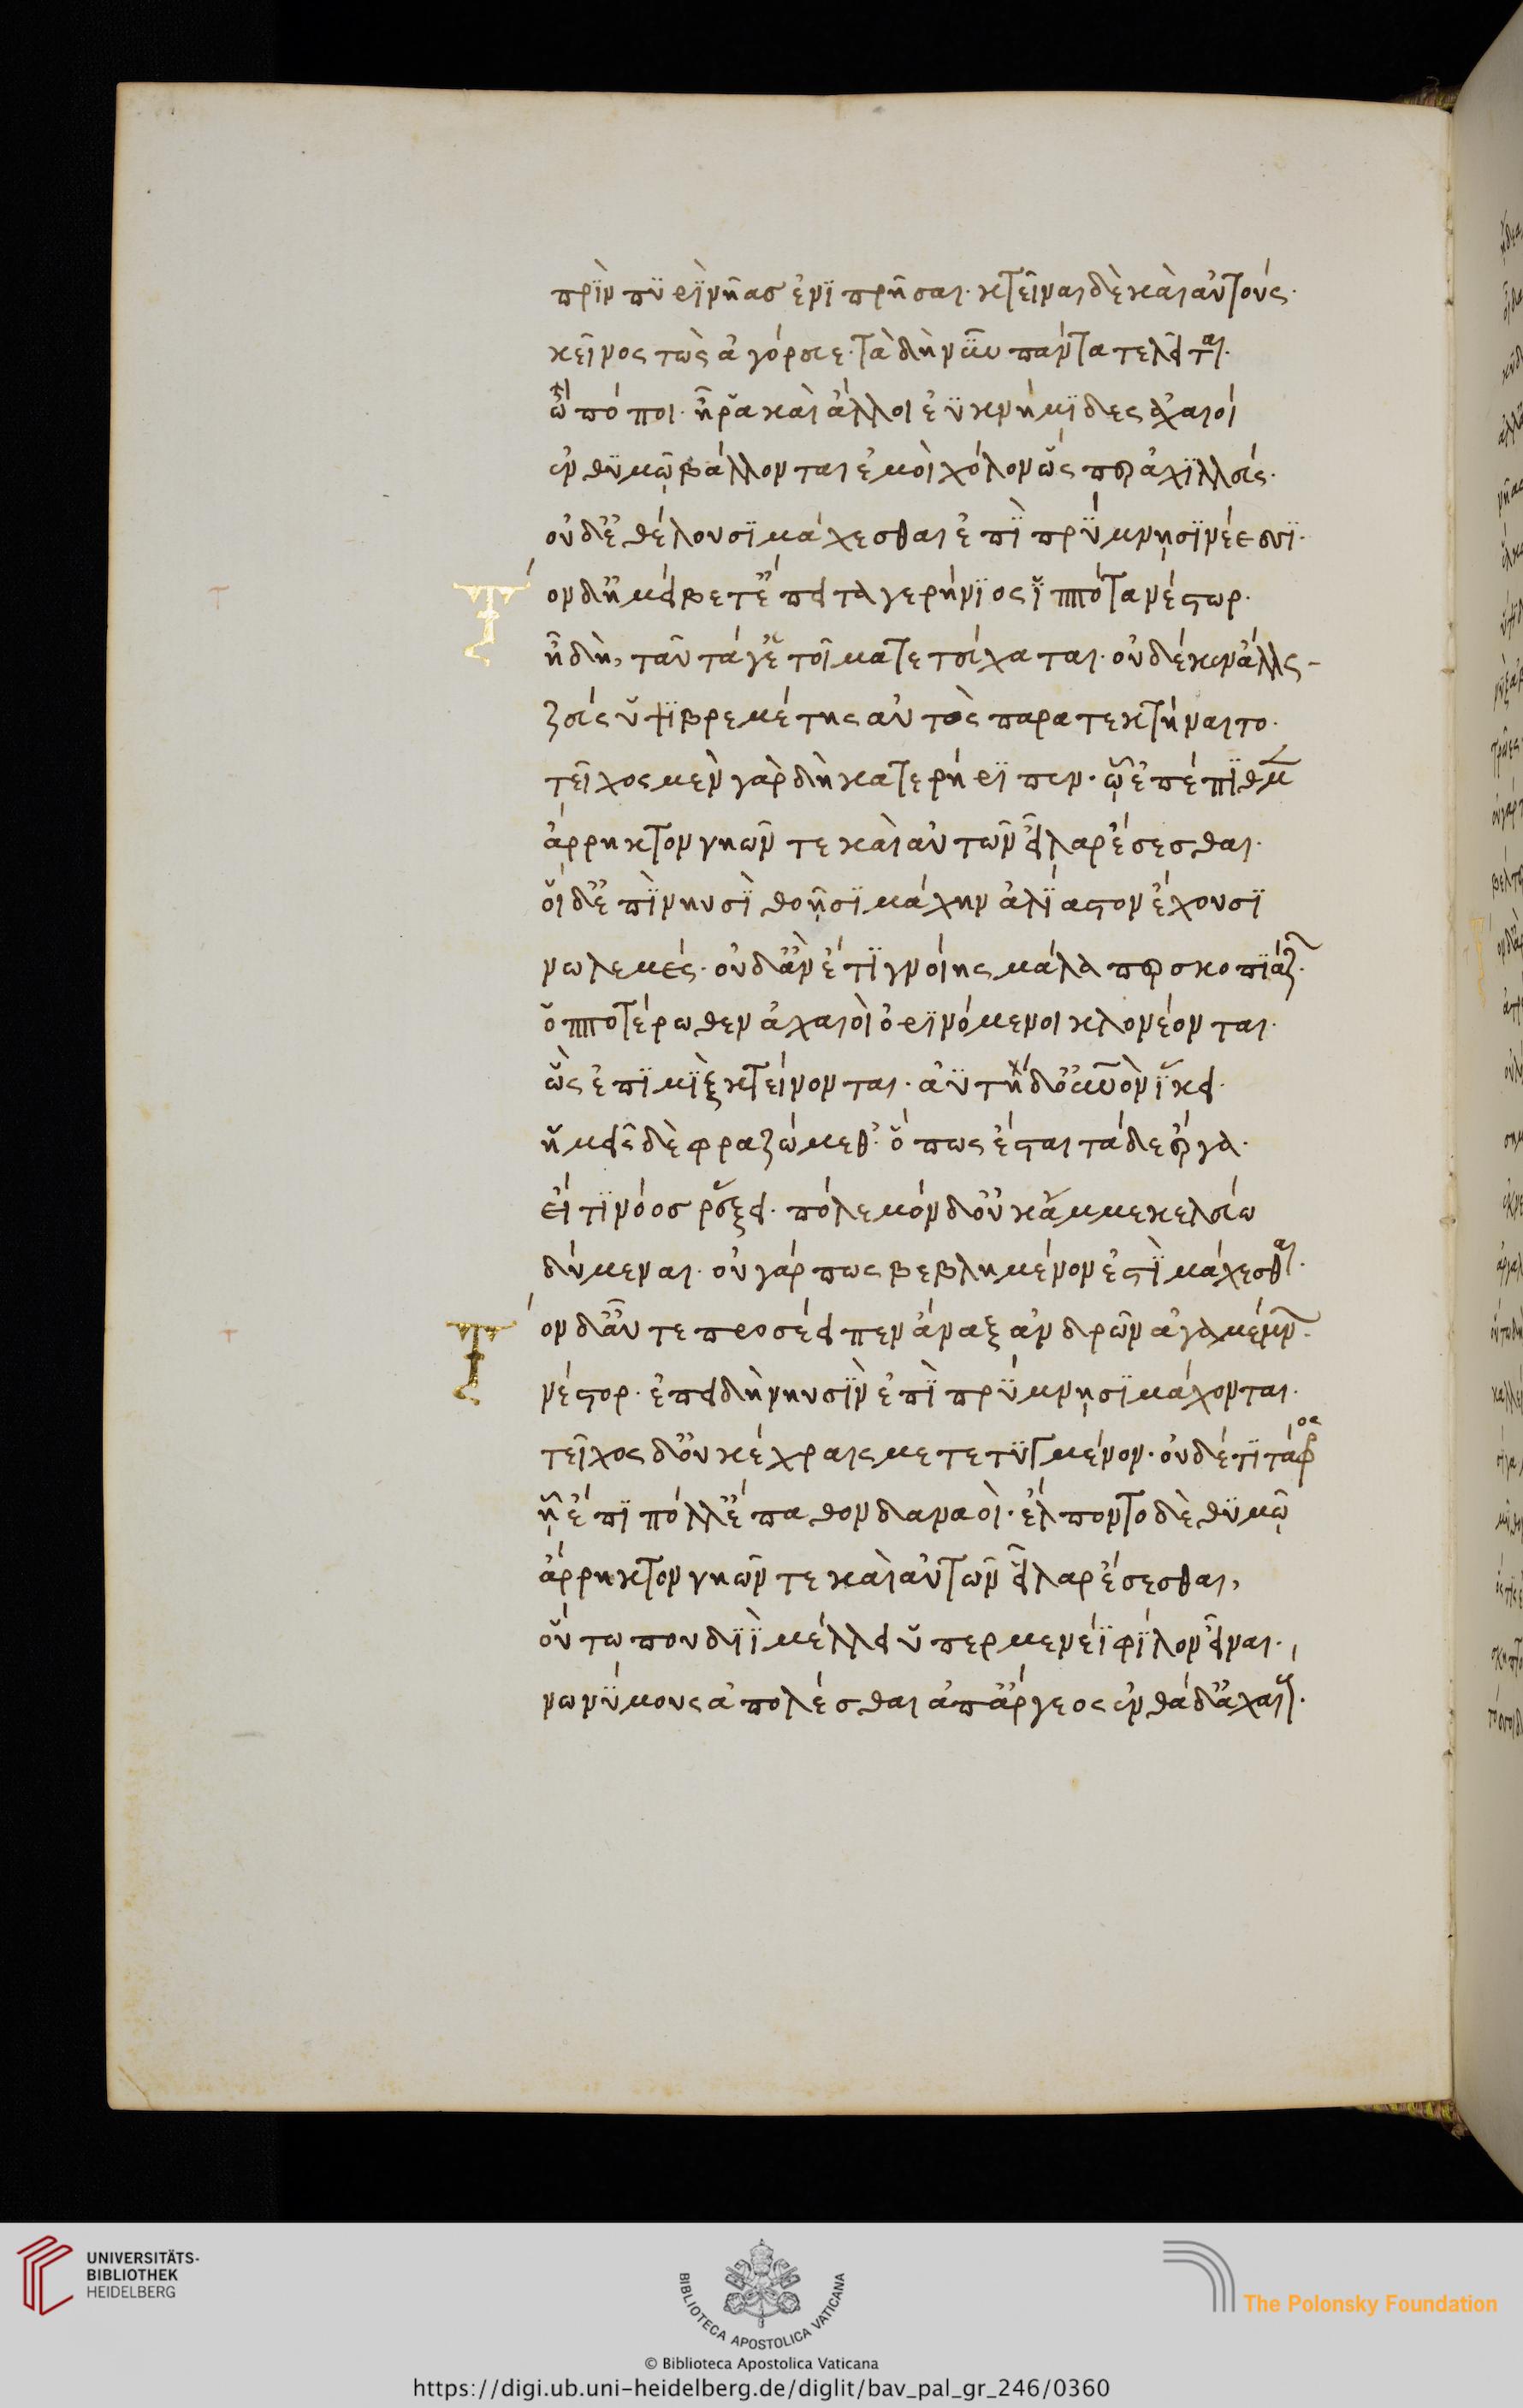 πρὶν πυρὶ νῆας ἐνιπρῆσαι· κτεῖναι δὲ καὶ αὐτούς·
κεῖνος τὼς ἀγόρευε· τὰ δὴ νῦν πάντα τελεῖται·
ὢ πόποι· ἦ ῥα καὶ ἄλλοι ἐϋκνήμιδες ἀχαιοί
ἐν θυμῷ βάλλονται ἐμοὶ χόλον ὥσπερ ἀχιλλεύς·
οὐδ' ἐθέλουσι μάχεσθαι ἐπὶ πρύμνῃσι νέεσσι·
Τὸν δ' ἠμείβετ' ἔπειτα γερήνιος ἱππότα νέστωρ·
ἦ δὴ, ταῦτά γ' ἑτοῖμα τετεύχαται· οὐδέ κεν ἄλλως
ζεὺς ὑψιβρεμέτης αὐτὸς παρατεκτήναιτο·
τεῖχος μὲν γὰρ δὴ κατερήριπεν· ᾧ ἐπέπιθμεν
ἄρρηκτον νηῶν τε καὶ αὐτῶν εἶλαρ ἔσεσθαι·
οἱ δ' ἐπὶ νηυσὶ θοῇσι μάχην ἀλίαστον ἔχουσι
νωλεμές· οὐδ' ἂν ἔτι γνοίης μάλα περ σκοπιάζων·
ὁπποτέρωθεν ἀχαιοὶ ὀρινόμενοι κλονέονται·
ὡς ἐπιμὶξ κτείνονται· ἀϋτὴ δ' οὐρανὸν ἵκει·
ἡμεῖς δὲ φραζώμεθ' ὅπως ἔσται τάδε ἔργα·
εἴ τι νόος ῥέξει· πόλεμον δ' οὐκ ἄμμε κελεύω
δύμεναι· οὐ γάρ πως βεβλημένον ἐστὶ μάχεσθαι·
Τὸν δ' αὖτε προσέειπεν ἄναξ ἀνδρῶν ἀγαμέμνων·
νέστορ· ἐπειδὴ νηυσὶν ἐπὶ πρύμνῃσι μάχονται·
τεῖχος δ' οὐκ ἔχραισμε τετυγμένον· οὐδέ τι τάφρος
ᾗ ἔπι πόλλ' ἔπαθον δαναοὶ· ἔλποντο δὲ θυμῷ
ἄρρηκτον νηῶν τε καὶ αὐτῶν εἶλαρ ἔσεσθαι,
οὕτω που διῒ μέλλει ὑπερμενέϊ φίλον εἶναι·
νωνύμους ἀπολέσθαι ἀπ' ἄργεος ἐνθάδ' ἀχαιούς·
UNIVERSITÄTS-
BIBLIOTHEK
HEIDELBERG
BIBLIOTECA APOSTOLICA VATICANA
The Polonsky Foundation
© Biblioteca Apostolica Vaticana
https://digi.ub.uni-heidelberg.de/diglit/bav_pal_gr_246/0360